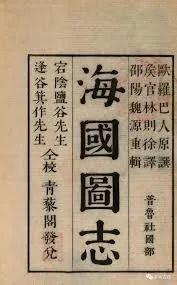 歐羅巴人原撰
矦官林則徐譯
邵陽魏源重輯
普魯社國部
海國圖志
宕陰鹽谷先生
逢谷箕作先生
仝校 青藜閣發兌